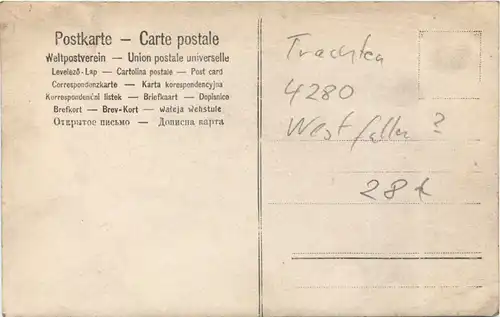 Postkarte — Carte postale
Weltpostverein — Union postale universelle
Levelező-Lap — Cartolina postale — Post card
Correspondenzkarte — Karta korespondencyjna
Korrespondenční listek — Briefkaart — Dopisnico
Brefkort — Brev-Kort — walcja wehstule
Открытое письмо — Дописна карта
Trachten
4280
Westfalen ?
28 €